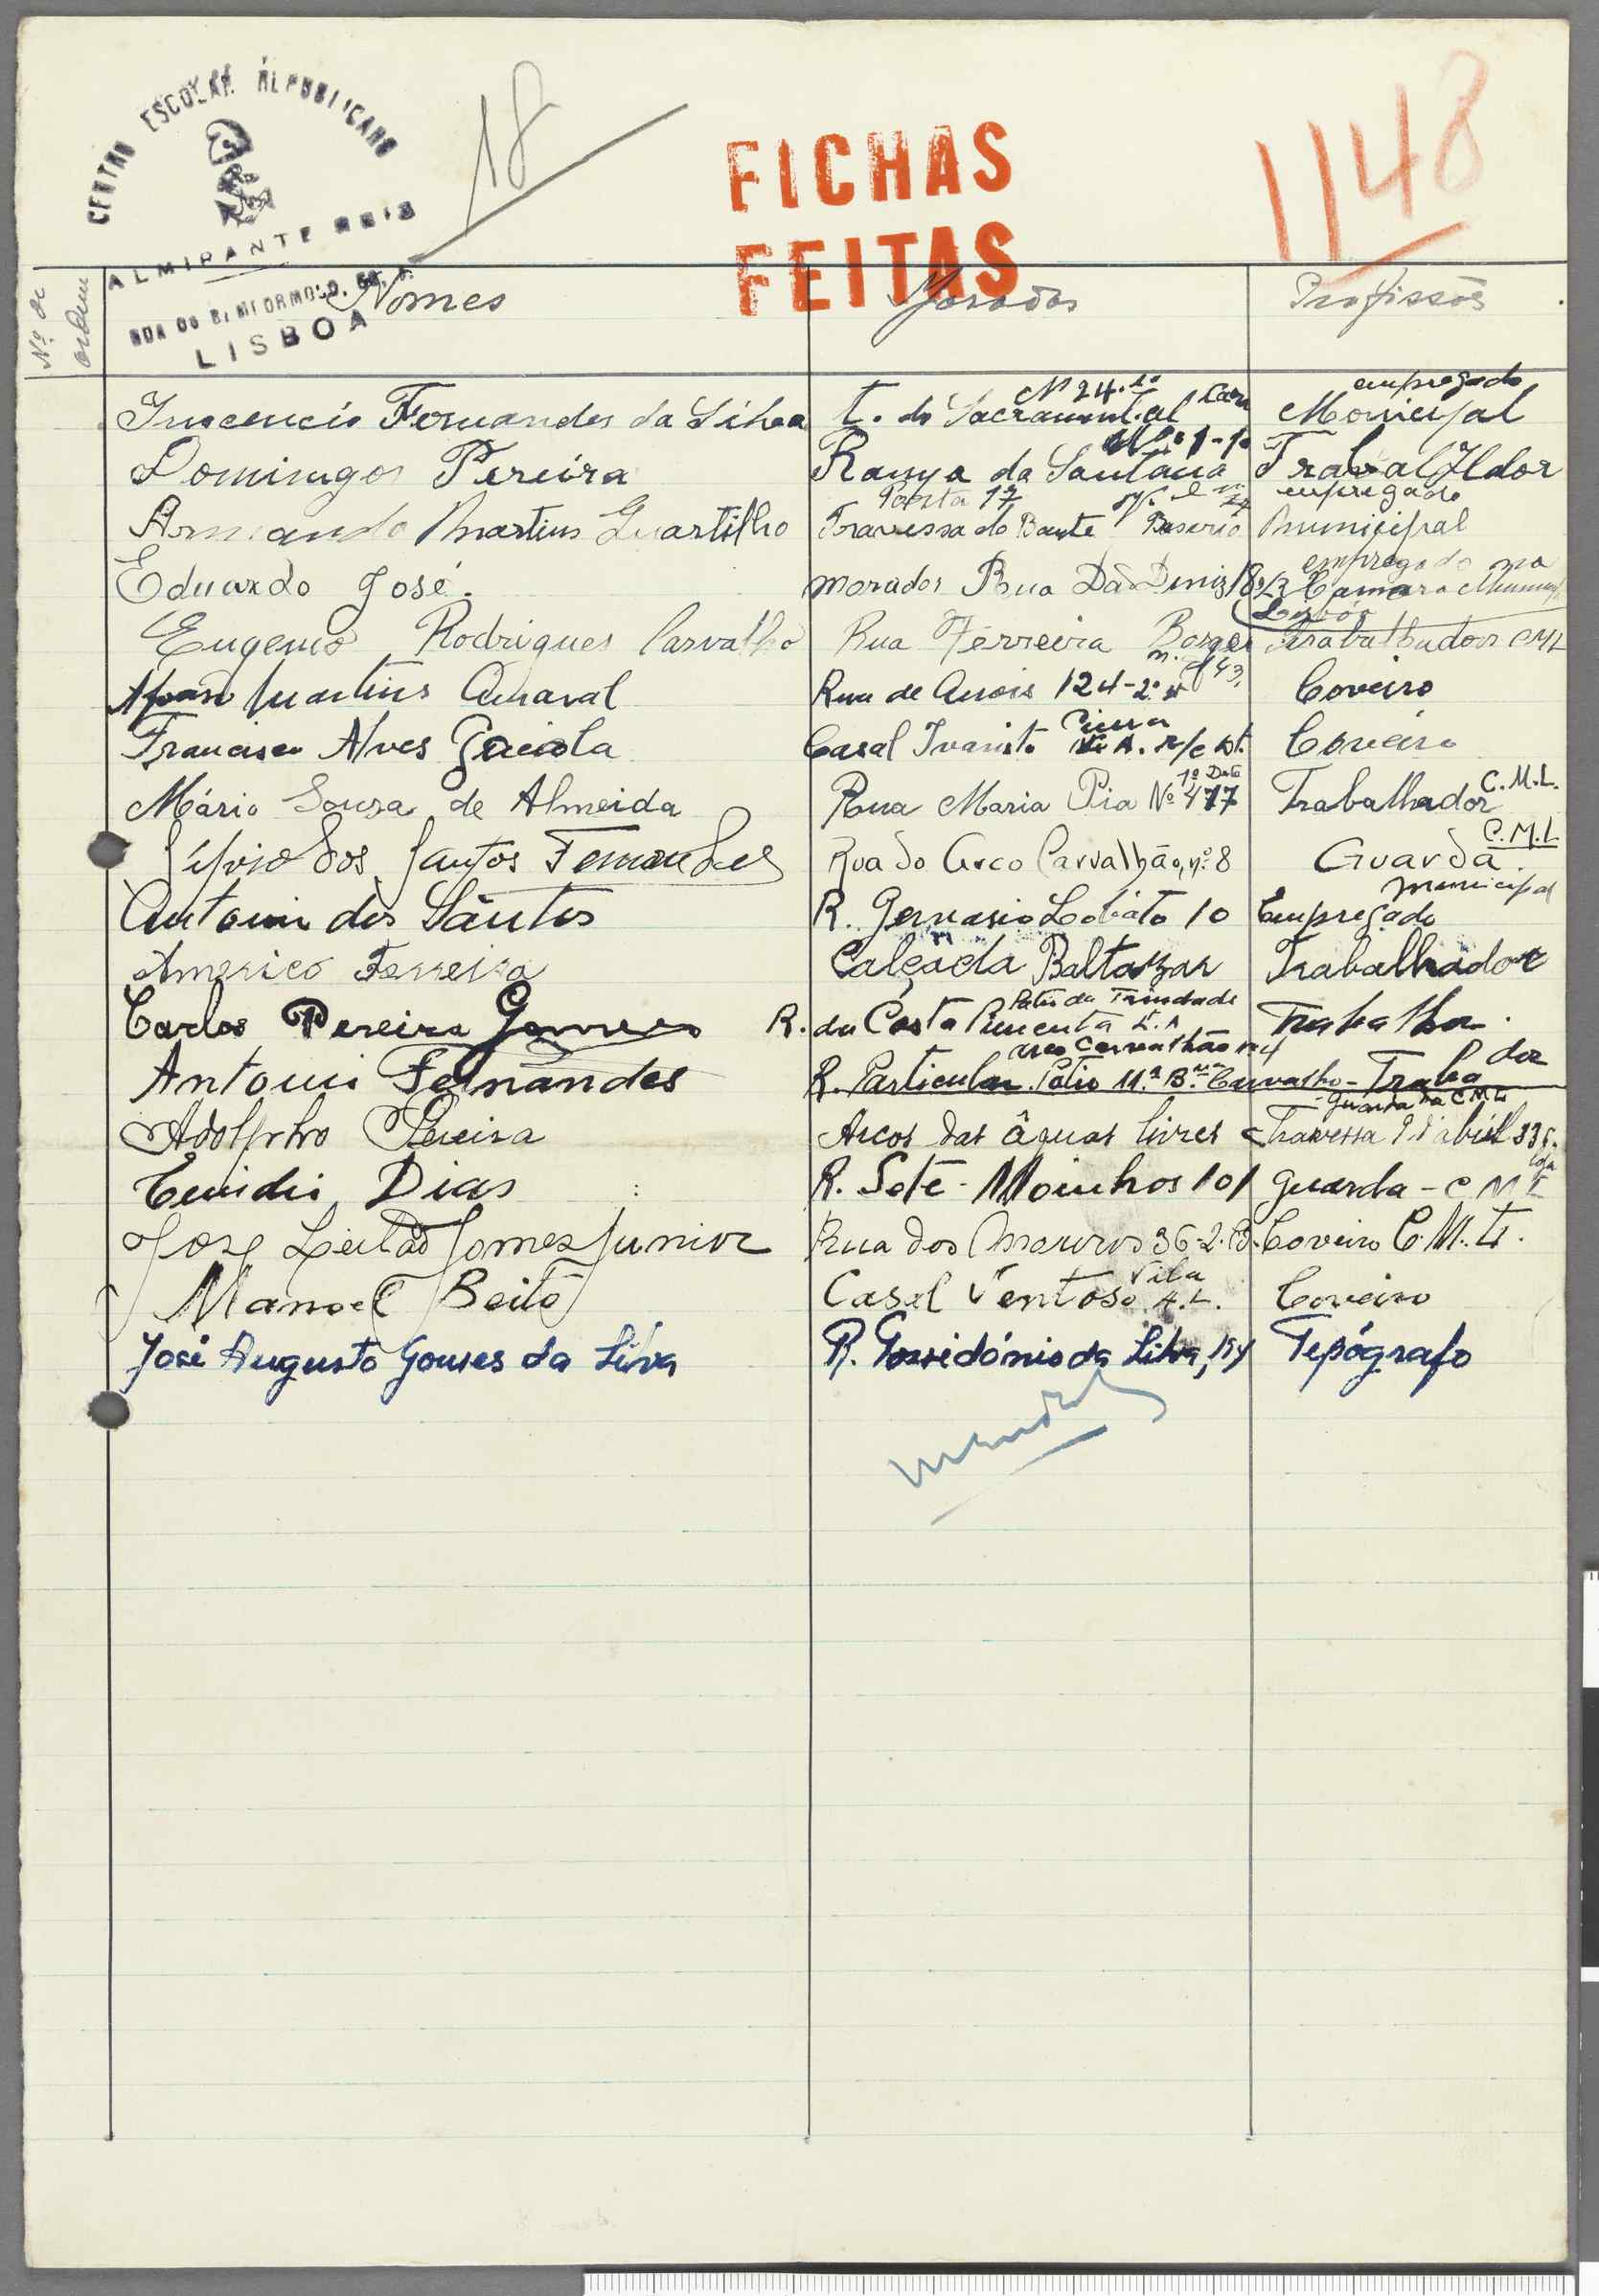 CENTRO ESCOLAR REPUBLICANO
ALMIRANTE REIS
RUA DO BEMFORMOSO, 50, 1.
LISBOA
18
FICHAS
FEITAS
1148
Nº de ordem Nomes Moradas Profissões
Inocencio Fernandes da Silva t. do Sacramento al Nº 24. 1º empregado Monicipal
Domingos Pereira Rampa da Santana Nº 1-1º Trabalhador
Armando Martins Quartilho Porta 17 Travessa do empregado Municipal
Eduardo José. morador Rua Dão Deniz 18 empregado na Camara
Lisboa
Eugenio Rodrigues Carvalho Rua Ferreira Borges n. 143. Trabalhador CML
Afonso Martins Amaral Rua de Arrois 124-2º Coveiro
Francisco Alves Gaiola Casal Ivaristo r/c Dt. Coveiro
Mário Souza de Almeida Rua Maria Pia Nº 477 1º Dtº Trabalhador C.M.L.
Silvio dos Santos Fernandes Rua do Arco Carvalhão, nº 8 Guarda C.M.L
Antonio dos Santos R. Gervasio Lobato 10 Empregado municipal
Americo Ferreira Calçada Baltazar Trabalhador
Carlos Pereira Gomes R. da Costa Pimenta Patio da Trindade L. A Trabalha.
Antonio Fernandes Arco Carvalhão R. Particular. Patio M.ª B. Carvalho - Traba dor
Adolpho Pereira Arcos das águas livres Travessa 9 d'abril 33 Guarda da C.M.L
loja
Dias R. Sete-Moinhos 101 guarda - C M L
José Leitão Gomes Junior Rua dos 36-2. Coveiro C.M.L.
Manoel Beito Casal Ventoso Vila A.L. Coveiro
José Augusto Gomes da Silva R. Possidónio da Silva, Tepógrafo